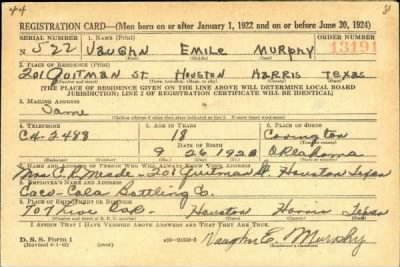 44
8
REGISTRATION CARD—(Men born on or after January 1, 1922 and on or before June 30, 1924)
SERIAL NUMBER 1. NAME (Print) ORDER NUMBER
N 522 VAUGHN EMILE MURPHY 13191
2. PLACE OF RESIDENCE (Print)
201 QUITMAN ST HOUSTON HARRIS TEXAS
[THE PLACE OF RESIDENCE GIVEN ON THE LINE ABOVE WILL DETERMINE LOCAL BOARD
JURISDICTION; LINE 2 OF REGISTRATION CERTIFICATE WILL BE IDENTICAL]
3. MAILING ADDRESS
Same
4. TELEPHONE 5. AGE IN YEARS 6. PLACE OF BIRTH
18 Covington
C4-2488 DATE OF BIRTH
9 26 1923 Oklahoma
7. NAME AND ADDRESS OF PERSON WHO WILL ALWAYS KNOW YOUR ADDRESS
Mrs. C.R. Meade - 201 Quitman St. Houston Texas
8. EMPLOYER'S NAME AND ADDRESS
Coco-Cola Bottling Co.
9. PLACE OF EMPLOYMENT OR BUSINESS
707 Live Oak Houston Harris Texas
I AFFIRM THAT I HAVE VERIFIED ABOVE ANSWERS AND THAT THEY ARE TRUE.
D. S. S. Form 1
Vaughn E. Murphy